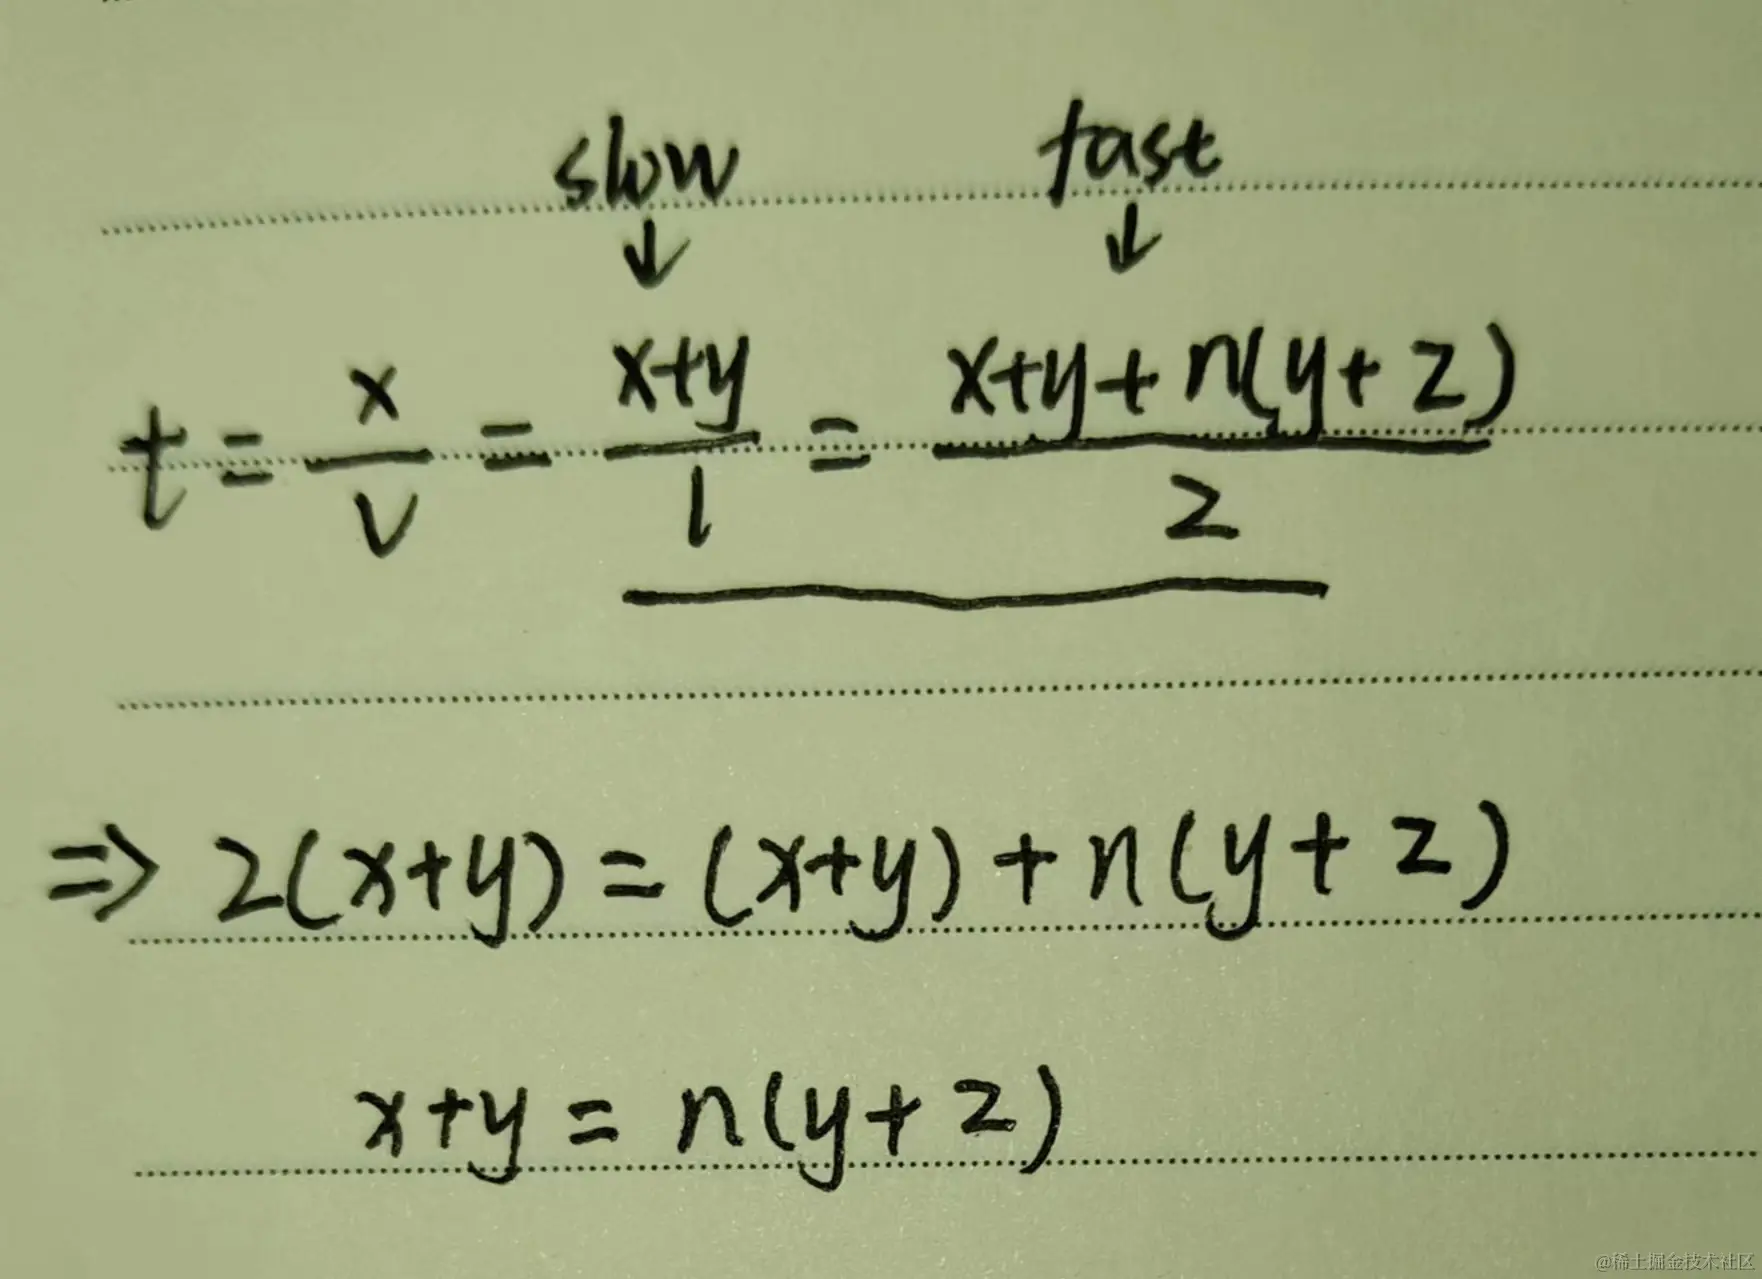 slow fast
↓ ↓
t = x/v = x+y/1 = x+y+n(y+z)/2
⇒ 2(x+y) = (x+y) + n(y+z)
x+y = n(y+z)
@稀土掘金技术社区